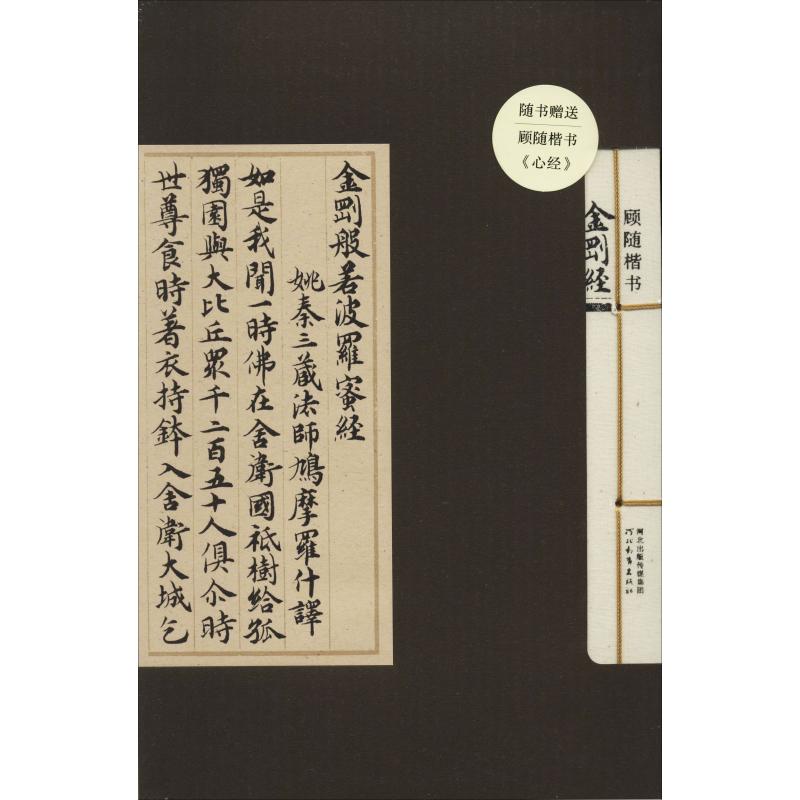 金剛般若波羅蜜経
姚秦三蔵法師鳩摩羅什譯
如是我聞一時佛在舍衛國祇樹給孤
獨園與大比丘眾千二百五十人俱尒時
世尊食時著衣持鉢入舍衛大城乞
随书赠送
顾随楷书
《心经》
顾随楷书
金剛経
河北出版传媒集团
河北教育出版社